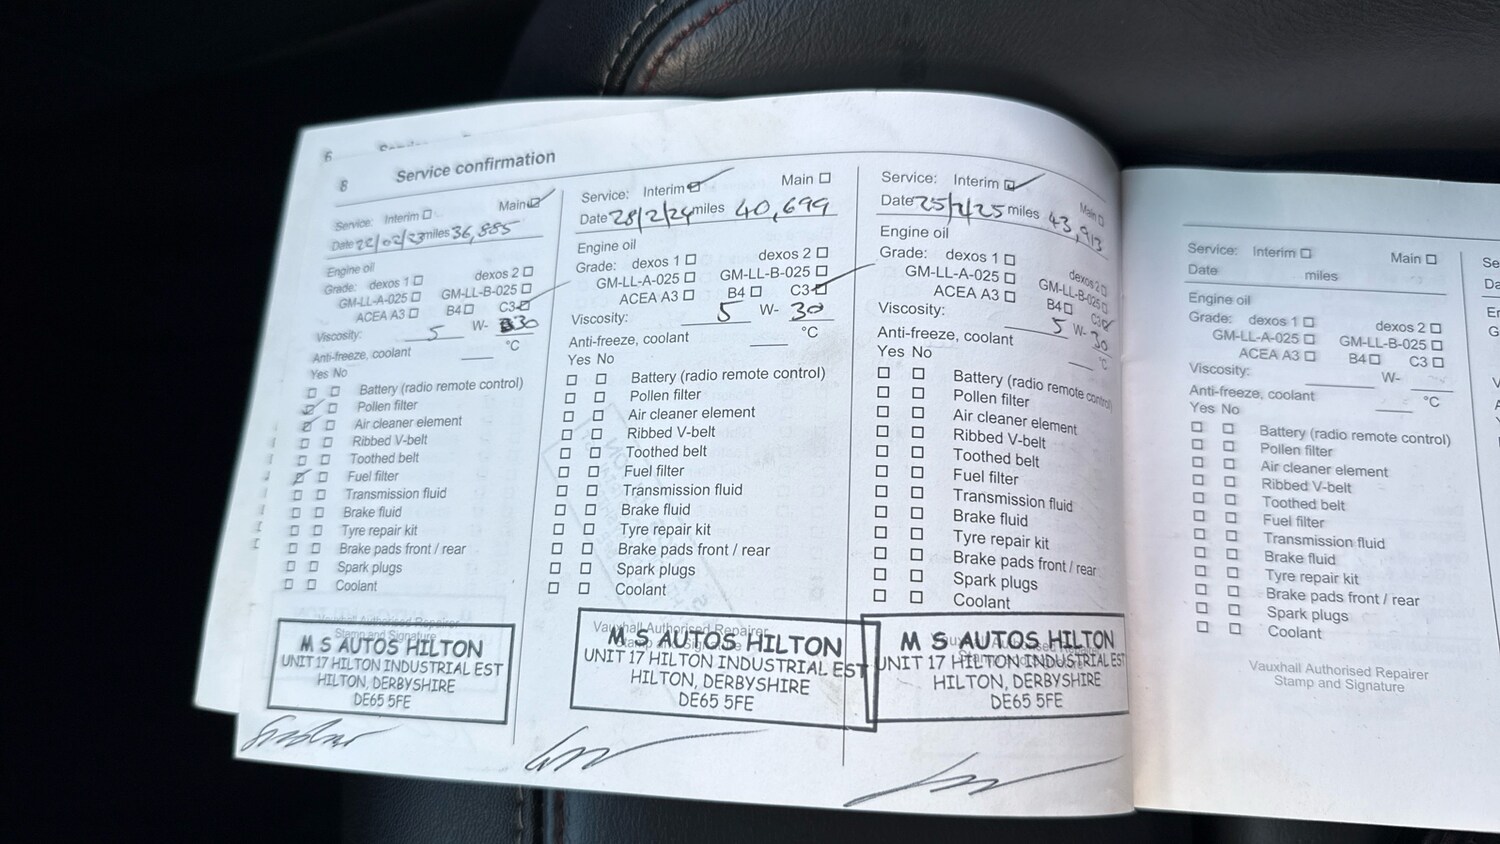 6
8 Service confirmation
Service: Interim ☐ Main ☑
Date 22/02/23 miles 36,885
Engine oil
Grade: dexos 1 ☐ dexos 2 ☐
GM-LL-A-025 ☐ GM-LL-B-025 ☐
ACEA A3 ☐ B4 ☐ C3 ☑
Viscosity: 5 W- 30
Anti-freeze, coolant ___ °C
Yes No
☐ ☐ Battery (radio remote control)
☑ ☐ Pollen filter
☑ ☐ Air cleaner element
☐ ☐ Ribbed V-belt
☐ ☐ Toothed belt
☑ ☐ Fuel filter
☐ ☐ Transmission fluid
☐ ☐ Brake fluid
☐ ☐ Tyre repair kit
☐ ☐ Brake pads front / rear
☐ ☐ Spark plugs
☐ ☐ Coolant
Vauxhall Authorised Repairer
Stamp and Signature
M S AUTOS HILTON
UNIT 17 HILTON INDUSTRIAL EST
HILTON, DERBYSHIRE
DE65 5FE
Service: Interim ☑ Main ☐
Date 28/2/24 miles 40,699
Engine oil
Grade: dexos 1 ☐ dexos 2 ☐
GM-LL-A-025 ☐ GM-LL-B-025 ☐
ACEA A3 ☐ B4 ☐ C3 ☑
Viscosity: 5 W- 30
Anti-freeze, coolant ___ °C
Yes No
☐ ☐ Battery (radio remote control)
☐ ☐ Pollen filter
☐ ☐ Air cleaner element
☐ ☐ Ribbed V-belt
☐ ☐ Toothed belt
☐ ☐ Fuel filter
☐ ☐ Transmission fluid
☐ ☐ Brake fluid
☐ ☐ Tyre repair kit
☐ ☐ Brake pads front / rear
☐ ☐ Spark plugs
☐ ☐ Coolant
Vauxhall Authorised Repairer
Stamp and Signature
M S AUTOS HILTON
UNIT 17 HILTON INDUSTRIAL EST
HILTON, DERBYSHIRE
DE65 5FE
Service: Interim ☑ Main ☐
Date miles 43,913
Engine oil
Grade: dexos 1 ☐ dexos 2 ☐
GM-LL-A-025 ☐ GM-LL-B-025 ☐
ACEA A3 ☐ B4 ☐ C3 ☑
Viscosity: 5 W- 30
Anti-freeze, coolant ___ °C
Yes No
☐ ☐ Battery (radio remote control)
☐ ☐ Pollen filter
☐ ☐ Air cleaner element
☐ ☐ Ribbed V-belt
☐ ☐ Toothed belt
☐ ☐ Fuel filter
☐ ☐ Transmission fluid
☐ ☐ Brake fluid
☐ ☐ Tyre repair kit
☐ ☐ Brake pads front / rear
☐ ☐ Spark plugs
☐ ☐ Coolant
M S AUTOS HILTON
UNIT 17 HILTON INDUSTRIAL EST
HILTON, DERBYSHIRE
DE65 5FE
Service: Interim ☐ Main ☐
Date miles
Engine oil
Grade: dexos 1 ☐ dexos 2 ☐
GM-LL-A-025 ☐ GM-LL-B-025 ☐
ACEA A3 ☐ B4 ☐ C3 ☐
Viscosity: ___ W- ___
Anti-freeze, coolant ___ °C
Yes No
☐ ☐ Battery (radio remote control)
☐ ☐ Pollen filter
☐ ☐ Air cleaner element
☐ ☐ Ribbed V-belt
☐ ☐ Toothed belt
☐ ☐ Fuel filter
☐ ☐ Transmission fluid
☐ ☐ Brake fluid
☐ ☐ Tyre repair kit
☐ ☐ Brake pads front / rear
☐ ☐ Spark plugs
☐ ☐ Coolant
Vauxhall Authorised Repairer
Stamp and Signature